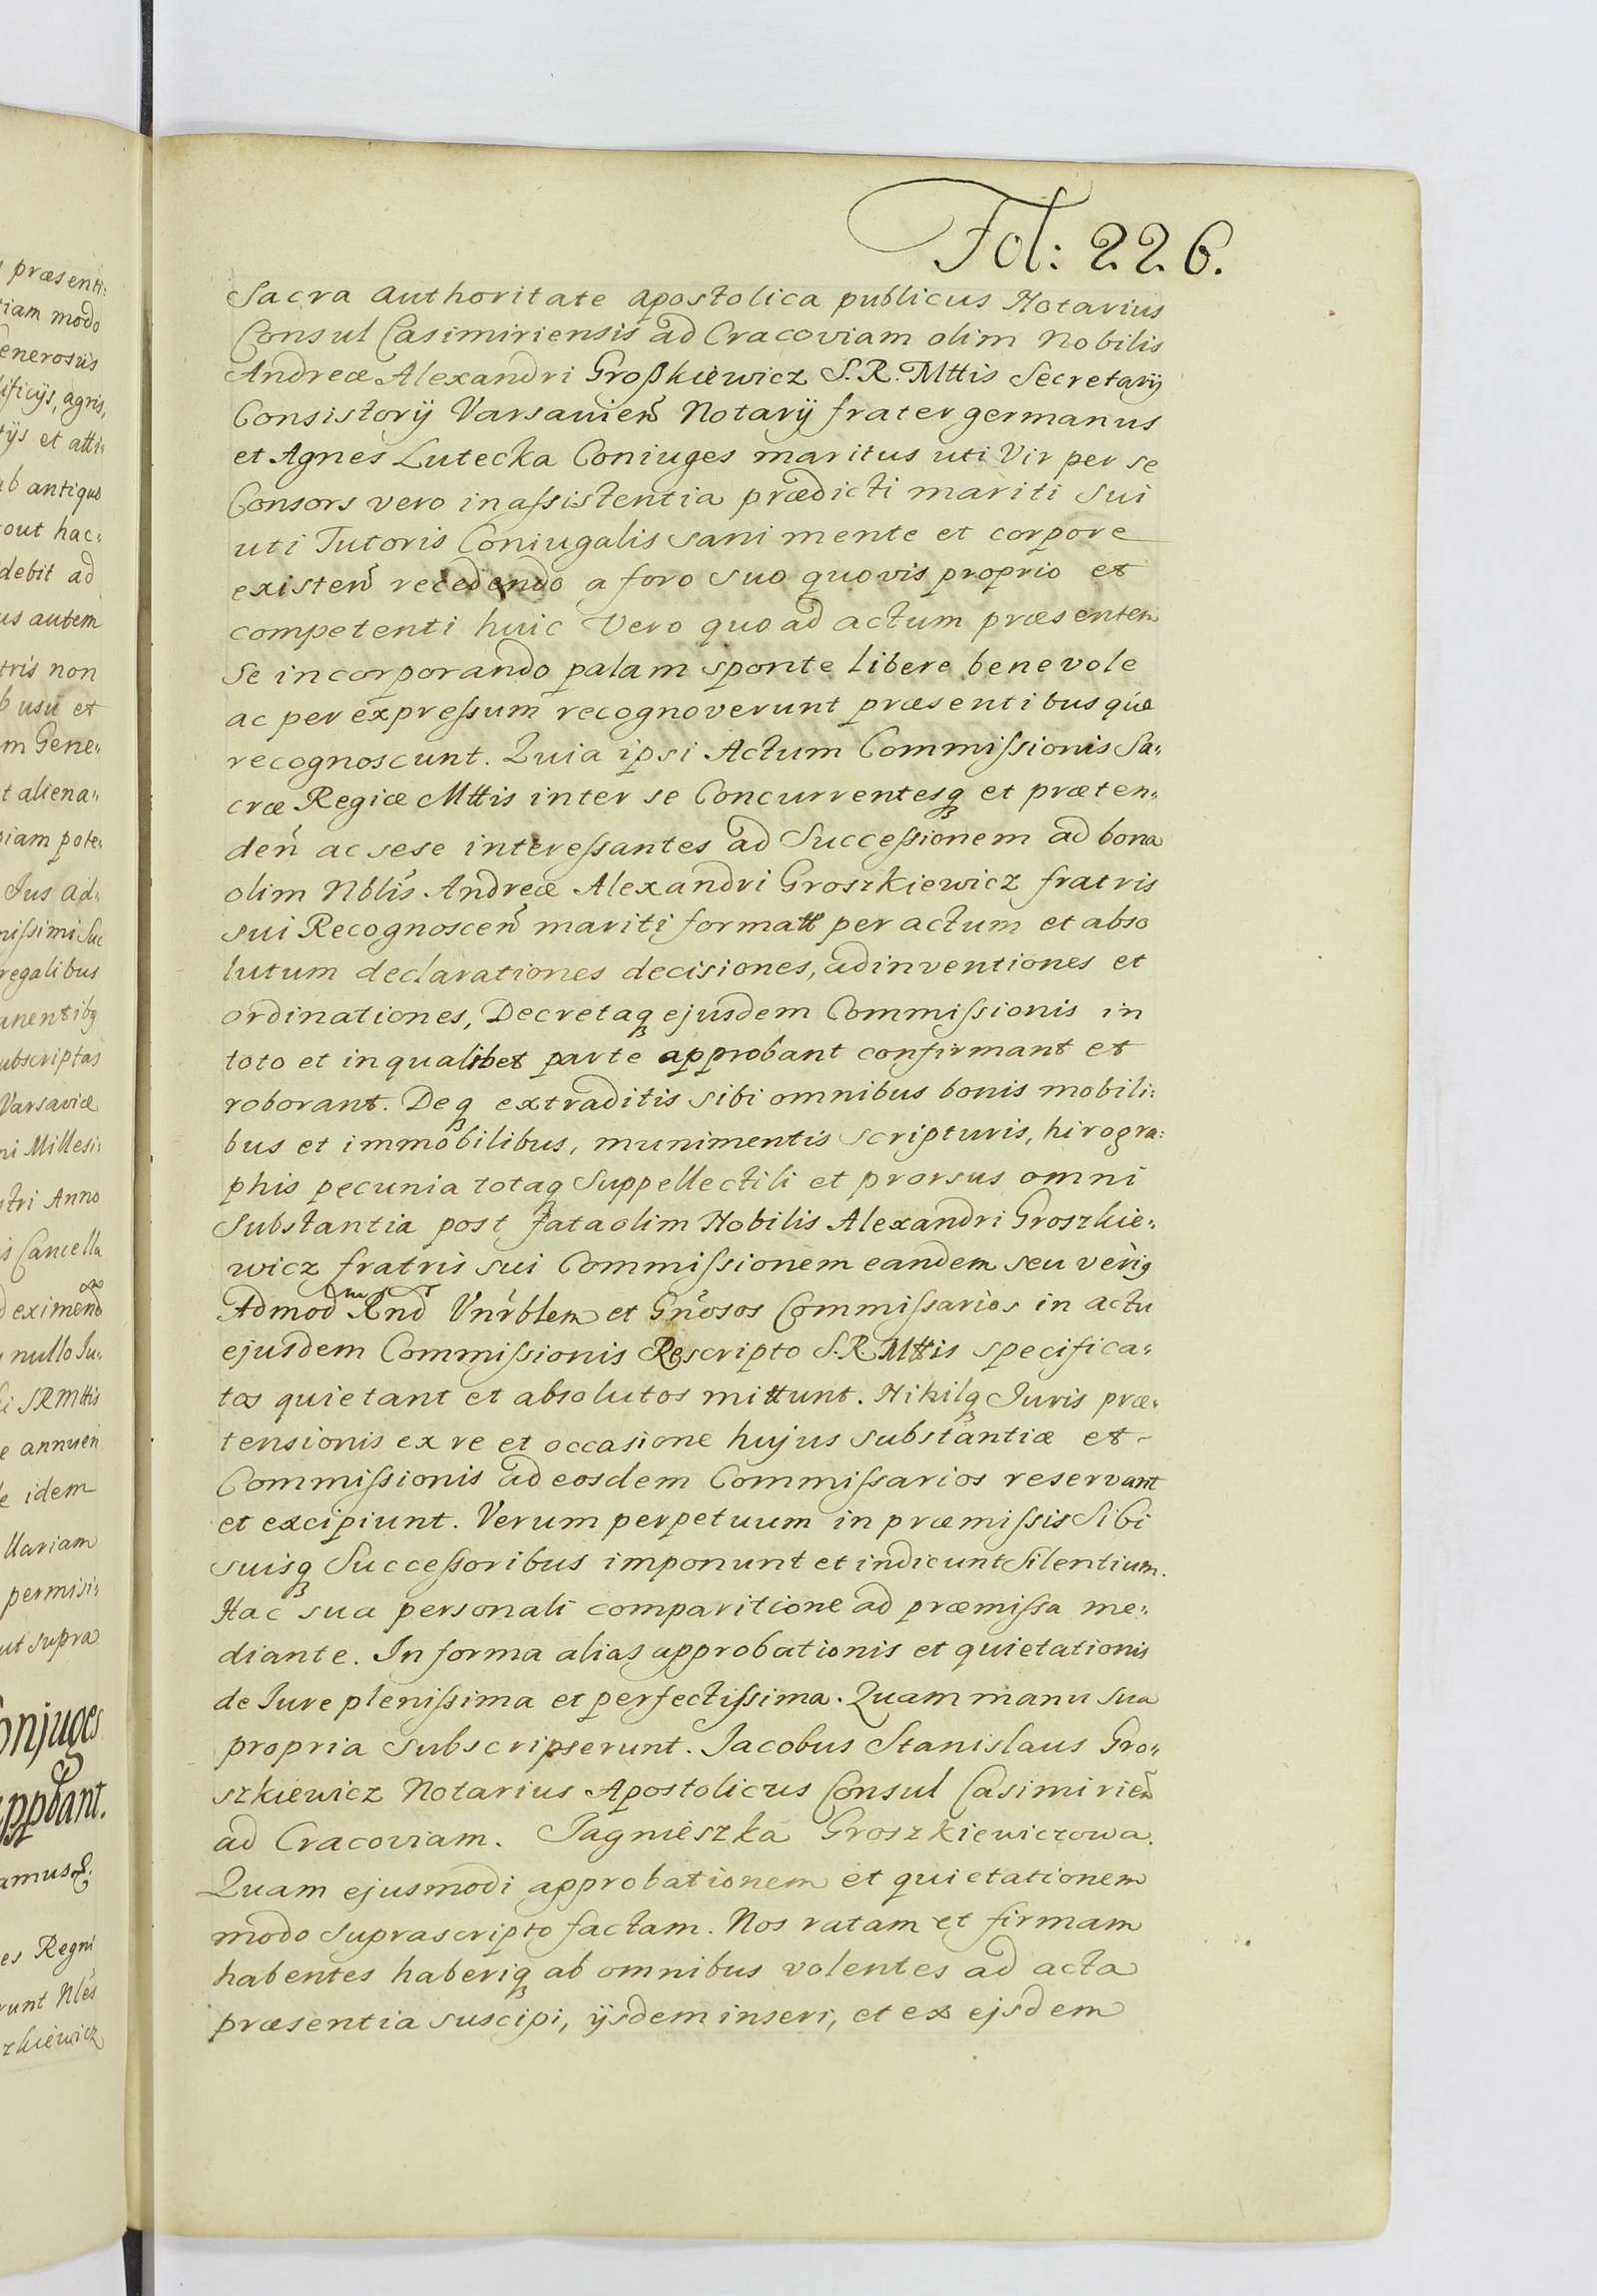 Fol: 226.
Sacra authoritate apostolica publicus Notarius
Consul Casimiriensis ad Cracoviam olim Nobilis
Andreæ Alexandri Großkiewicz S. R. Mttis Secretarÿ
Consistorÿ Varsavień Notarÿ frater germanus
et Agnes Lutecka Coniuges maritus uti Vir per se
Consors vero in aſsistentia prædicti mariti sui
uti Tutoris Coniugalis sani mente et corpore
existeń recedendo a foro suo quovis proprio et
competenti huic vero quo ad actum præsentem
se incorporando palam sponte libere benevole
ac per expreſsum recognoverunt præsentibus quæ
recognoscunt. Quia ipsi Actum Commiſsionis Sa„
cræ Regiæ Mttis inter se Concurrentesq et præten„
deń ac sese intereſsantes ad Succeſsionem ad bona
olim Nblis Andreæ Alexandri Groszkiewicz fratris
sui Recognosceń mariti formatt per actum et abso
lutum declarationes decisiones, adinventiones et
ordinationes, Decretaq ejusdem Commiſsionis in
toto et in qualibet parte approbant confirmant et
roborant. Deq extraditis sibi omnibus bonis mobili:
bus et immobilibus, munimentis scripturis, hirogra:
phis pecunia totaq Suppellectili et prorsus omni
Substantia post fata olim Nobilis Alexandri Groszkie„
wicz fratris sui Commiſsionem eandem seu verig
Admod Rnd Vnrblem et Gnosos Commiſsarios in actu
ejusdem Commiſsionis Rescripto S. R Mttis specifica„
tos quietant et absolutos mittunt. Nihilq Juris præ„
tensionis ex re et occasione hujus substantiæ et
Commiſsionis ad eosdem Commiſsarios reservant
et excipiunt. Verum perpetuum in præmiſsis Sibi
suisq Succeſsoribus imponunt et indicunt Silentium.
Hac sua personali comparitione ad præmiſsa me„
diante. In forma alias approbationis et quietationis
de Iure pleniſsima et perfectiſsima. Quam manu sua
propria subscripserunt. Jacobus Stanislaus Gro„
szkiewicz Notarius Apostolicus Consul Casimirień
ad Cracoviam. Jagnieszka Groszkiewiczowa.
Quam ejusmodi approbationem et quietationem
modo suprascripto factam. Nos ratam et firmam
habentes haberiq ab omnibus volentes ad acta
præsentia suscipi, ÿsdem inseri, et ex ejsdem
præsenti:
modo
agris,
et atti„
ab antiquo
hac„
debit ad
autem
non
usu et
Gene„
aliena„
Jus ad„
regalibus
Varsaviæ
Millesi:
Anno
Cancella
nullo Ju„
SRMttis
idem
permisi:
ut supra
Conjuges
Regni